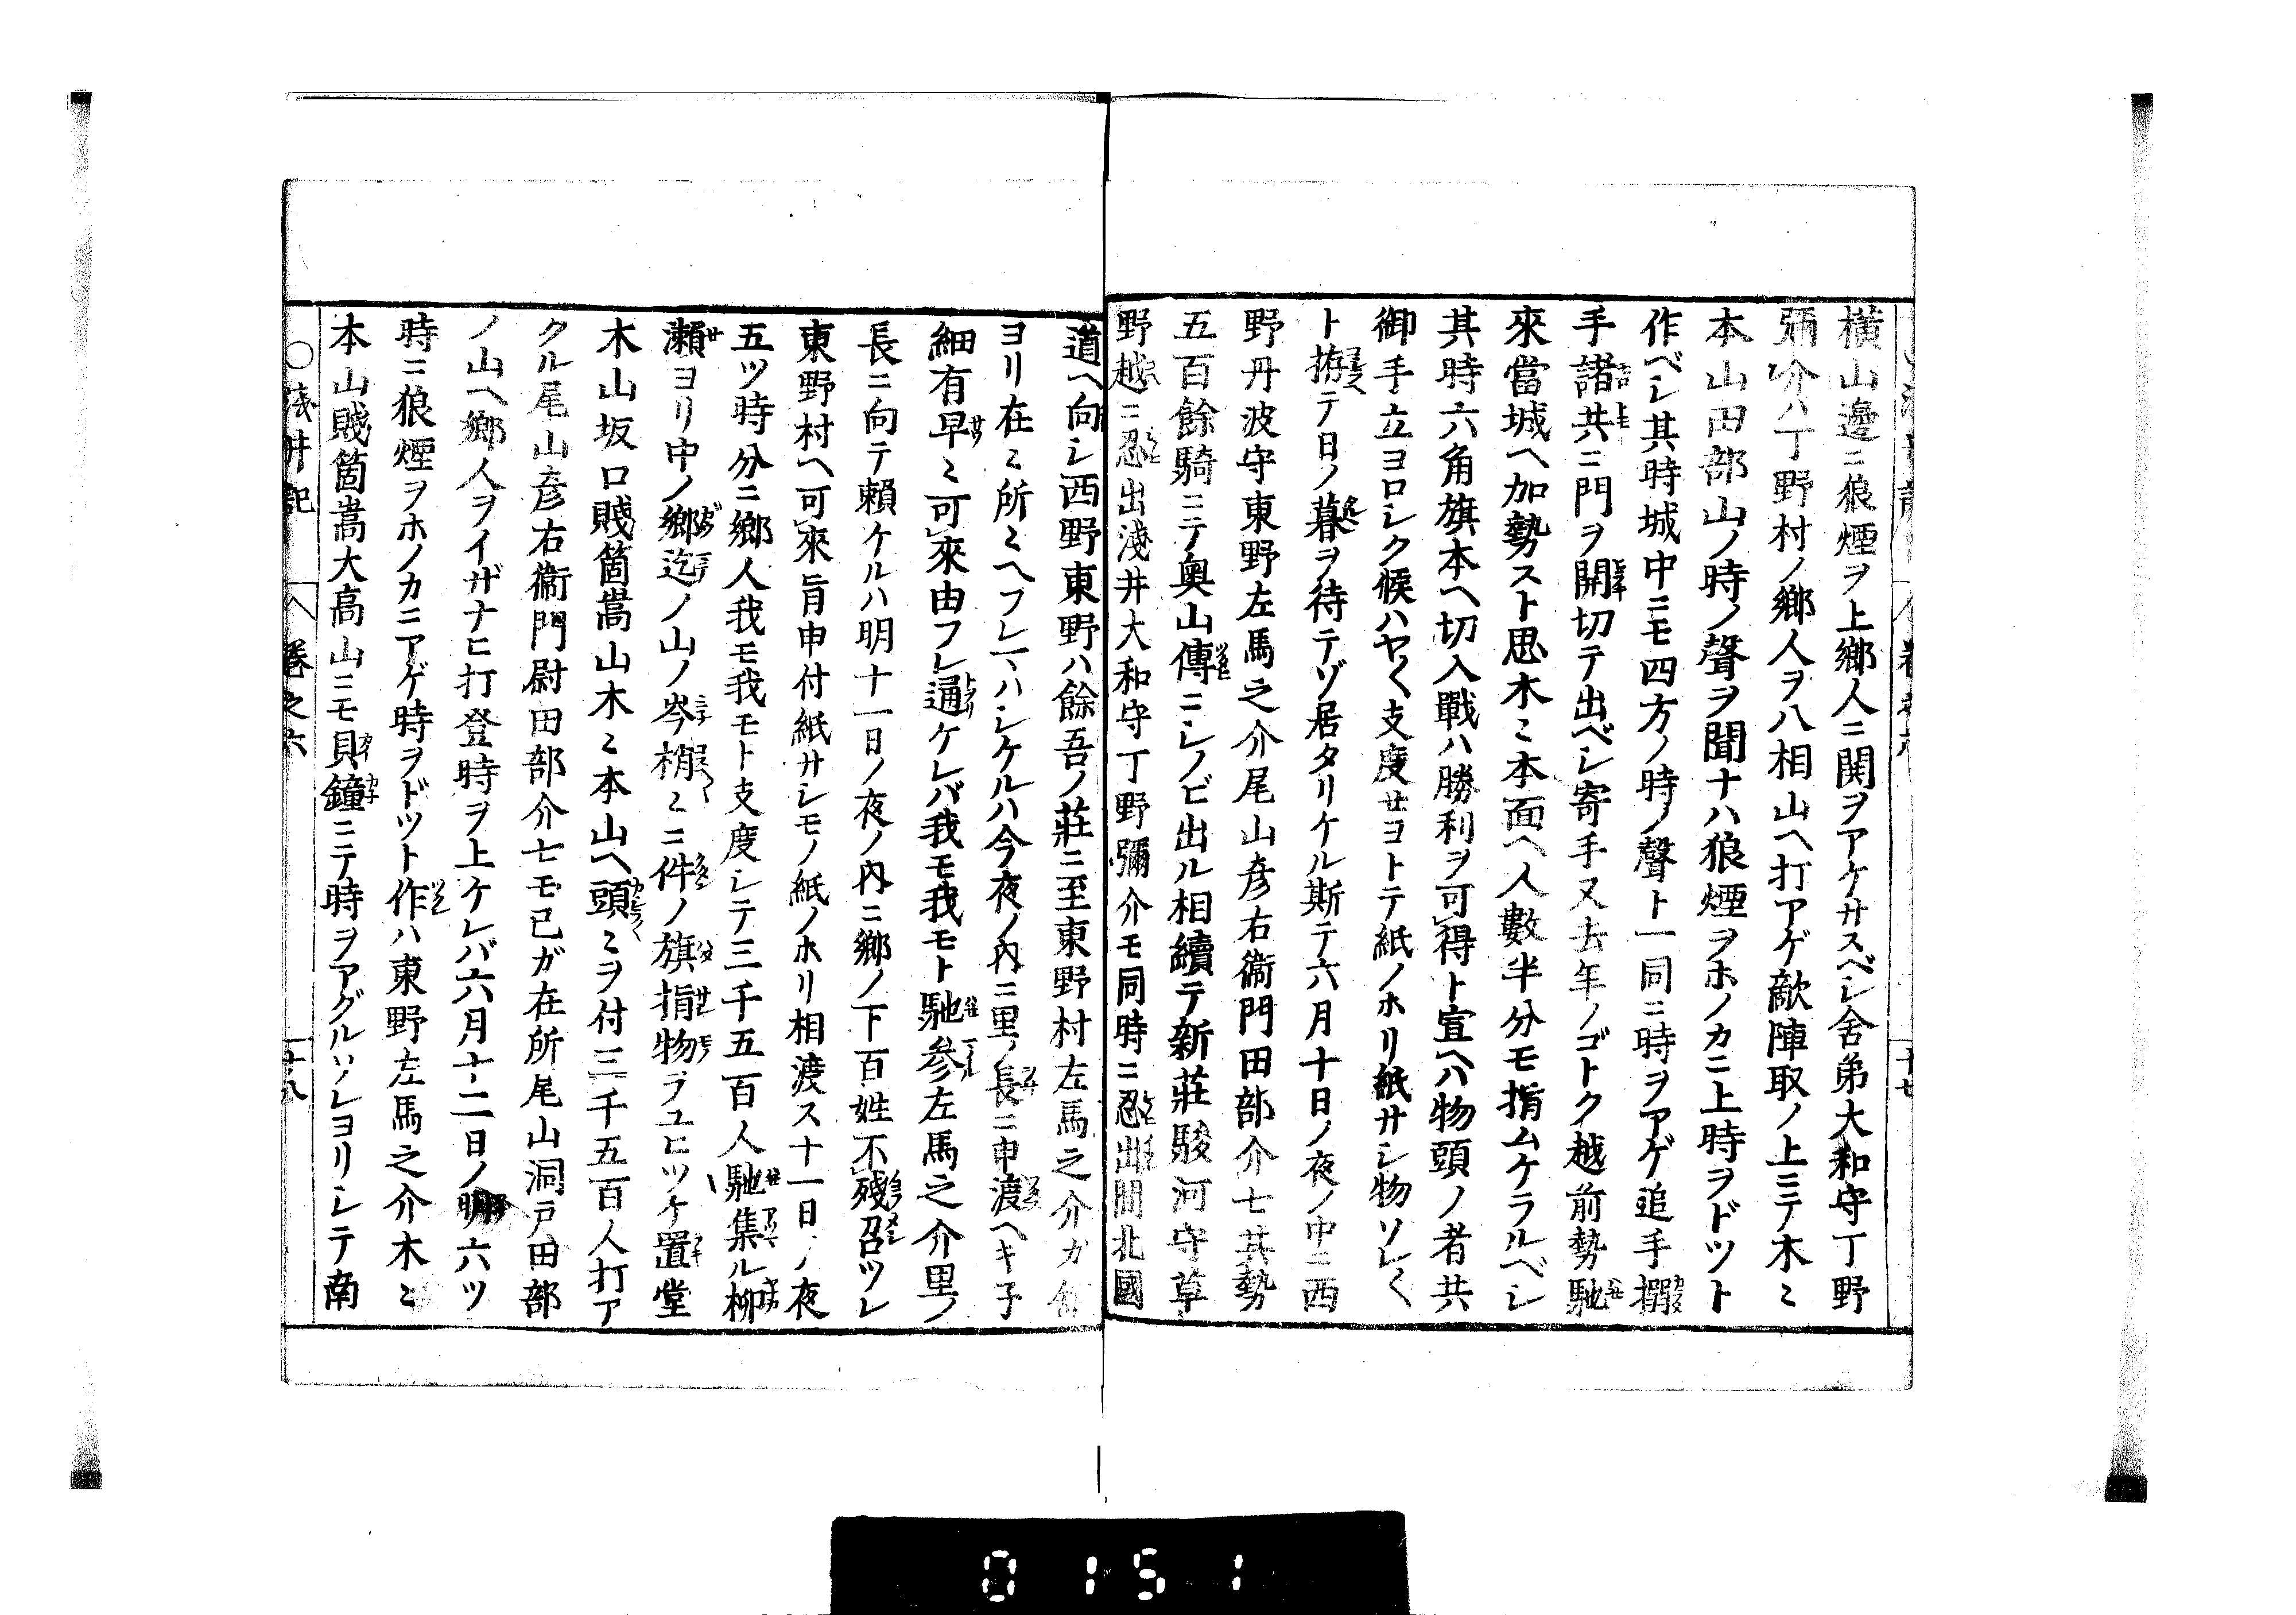 横山邊ニ狼煙ヲ上郷人ニ鬨ヲアケサスベシ舍弟大和守丁野
彌介ハ丁野村ノ郷人ヲ八相山ヘ打アゲ敵陣取ノ上ニテ木〻
本山田部山ノ時ノ聲ヲ聞ナハ狼煙ヲホノカニ上時ヲドツト
作ベシ其時城中ニモ四方ノ時ノ聲ト一同ニ時ヲアゲ追手搦
手諸共ニ門ヲ開切テ出ベシ寄手又去年ノゴトク越前勢馳
來當城ヘ加勢スト思木〻本面ヘ人數半分モ指ムケラルベシ
其時六角旗本ヘ切入戰ハ勝利ヲ可得ト宣ヘハ物頭ノ者共
御手立ヨロシク候ハヤ〱支度セヨトテ紙ノホリ紙サシ物ソレ〱
ト拵テ日ノ暮ヲ待テゾ居タリケル斯テ六月十日ノ夜ノ中ニ西
野丹波守東野左馬之介尾山彦右衞門田部介七其勢
五百餘騎ニテ奥山傳ニシノビ出ル相續テ新莊駿河守草
野越ニ忍出淺井大和守丁野彌介モ同時ニ忍出間北國
道ヘ向シ西野東野ハ餘吾ノ莊ニ至東野村左馬之介ガ舘
ヨリ在〻所〻ヘフレヽハシケルハ今夜ノ内ニ里ノ長ニ申渡ヘキ子
細有早〻可來由フレ通ケレバ我モ我モト馳参左馬之介里ノ
長ニ向テ賴ケルハ明十一日ノ夜ノ内ニ郷ノ下百姓不殘召ツレ
東野村ヘ可來旨申付紙サシモノ紙ノホリ相渡ス十一日ノ夜
五ツ時分ニ郷人我モ我モト支度シテ三千五百人馳集ル柳
瀨ヨリ中ノ郷迄ノ山ノ岑梢〻ニ件ノ旗指物ヲユヒツケ置堂
木山坂口賤箇嵩山木〻本山ヘ頭〻ヲ付三千五百人打ア
クル尾山彦右衞門尉田部介七モ己ガ在所尾山洞戸田部
ノ山ヘ郷人ヲイザナヒ打登時ヲ上ケレバ六月十二日ノ明六ツ
時ニ狼煙ヲホノカニアゲ時ヲドツト作ハ東野左馬之介木〻
本山賤箇嵩大高山ニモ貝鐘ニテ時ヲアグルソレヨリシテ南
○淺井記 卷之六 十八
0151